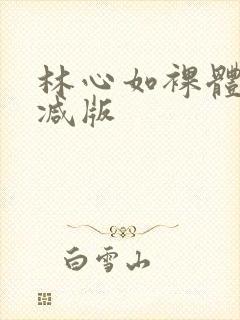 林心如裸體
减版
白雪山